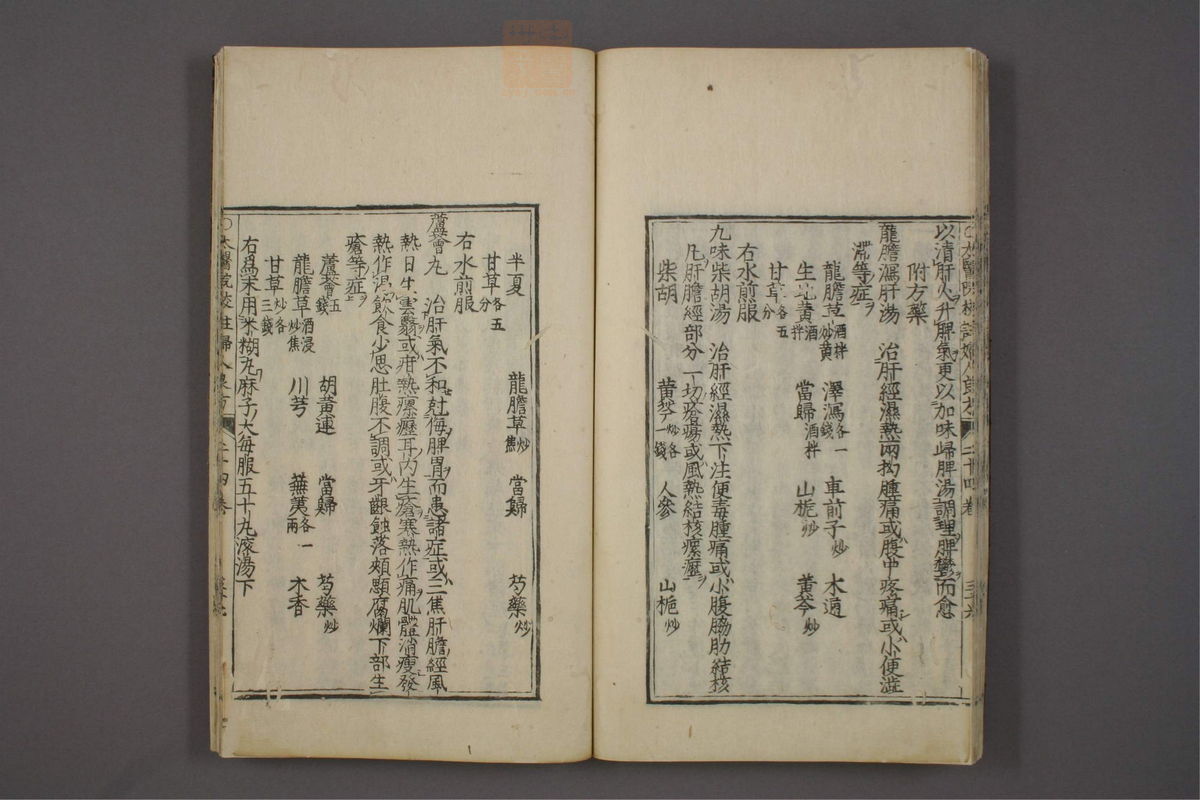 以清肝火升脾氣更以加味歸脾湯調理脾鬱而愈
附方藥
龍膽瀉肝湯 治肝經濕熱兩拗腫痛或腹中疼痛或小便澁
滯等症
龍膽草酒拌炒黄 澤瀉各一錢 車前子炒 木通
生地黄酒拌 當歸酒拌 山梔炒 黄芩炒
甘草各五分
右水煎服
九味柴胡湯 治肝經濕熱下注便毒腫痛或小腹脇肋結核
凡肝膽經部分一切瘡瘍或風熱結核瘰癧
柴胡 黄芩炒各一錢 人參 山梔炒
半夏 龍膽草炒焦 當歸 芍藥炒
甘草各五分
右水煎服
蘆薈丸 治肝氣不和尅侮脾胃而患諸症或三焦肝膽經風
熱目生雲翳或疳熱瘰癧耳內生瘡寒熱作痛肌體消瘦發
熱作渇飲食少思肚腹不調或牙齦蝕落頰顋腐爛下部生
瘡等症
蘆薈五錢 胡黄連 當歸 芍藥炒
龍膽草酒浸炒焦 川芎 蕪荑各一兩 木香
甘草炒各三錢
右爲末用米糊丸麻子大每服五十丸滾湯下